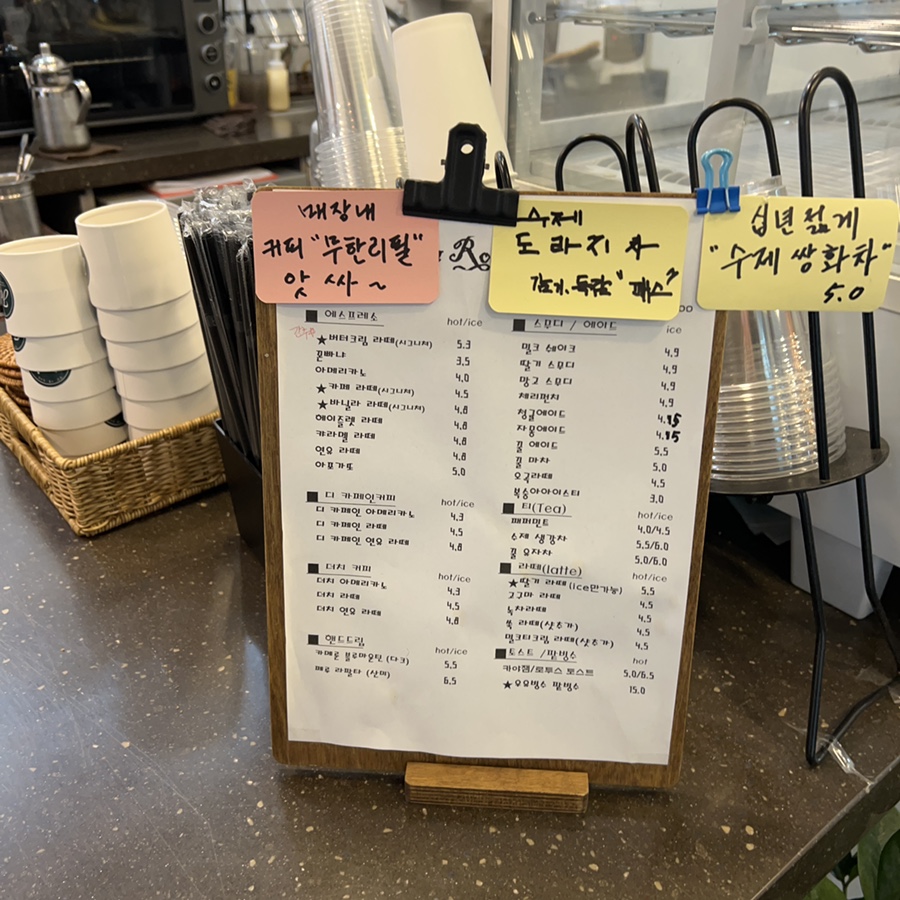 매장내
커피 "무한리필"
앗싸~
수제
도라지차
감기.독감"뚝스"
십년젊게
"수제 쌍화차"
5.0
Ro
■ 에스프레소 hot/ice
★버터크림 라떼(시그니쳐) 5.3
꼰빠냐 3.5
아메리카노 4.0
★카페 라떼(시그니쳐) 4.5
★바닐라 라떼(시그니쳐) 4.8
헤이즐렛 라떼 4.8
캬라멜 라떼 4.8
연유 라떼 4.8
아포가또 5.0
■ 디 카페인커피 hot/ice
디 카페인 아메리카노 4.3
디 카페인 라떼 4.5
디 카페인 연유 라떼 4.8
■ 더치 커피 hot/ice
더치 아메리카노 4.3
더치 라떼 4.5
더치 연유 라떼 4.8
■ 핸드드립 hot/ice
카메룬 블루마운틴 (다크) 5.5
페루 라팔타 (산미) 6.5
■ 스무디 / 에이드 ice
밀크 쉐이크 4.9
딸기 스무디 4.9
망고 스무디 4.9
체리펀치 4.9
청귤에이드 4.95
자몽에이드 4.95
꿀 에이드 5.5
꿀 마차 5.0
오곡라떼 4.5
복숭아아이스티 3.0
■ 티(Tea) hot/ice
페퍼민트 4.0/4.5
수제 생강차 5.5/6.0
꿀 유자차 5.0/6.0
■ 라떼(latte) hot/ice
★딸기 라떼(ice만가능) 5.5
고구마 라떼 4.5
녹차라떼 4.5
쑥 라떼(샷추가) 4.5
밀크티크림 라떼(샷추가) 4.5
■토스트 /팥빙수 hot
카야잼/로투스 토스트 5.0/6.5
★우유빙수 팥빙수 15.0